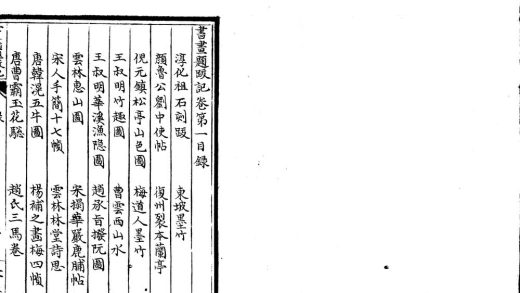 書畫題跋記卷第一目錄
淳化祖石刻跋　東坡墨竹
顏魯公劉中使帖　復州裂本蘭亭
倪元鎮松亭山色圖　梅道人墨竹
王叔明竹趣圖　曹雲西山水
王叔明華溪漁隱圖　趙承旨摘阮圖
雲林惠山圖　宋搨華嚴鹿脯帖
宋人手簡十七幀　雲林林堂詩思
唐韓滉五牛圖　楊補之畫梅四幀
唐曹霸玉花驄　趙氏三馬卷